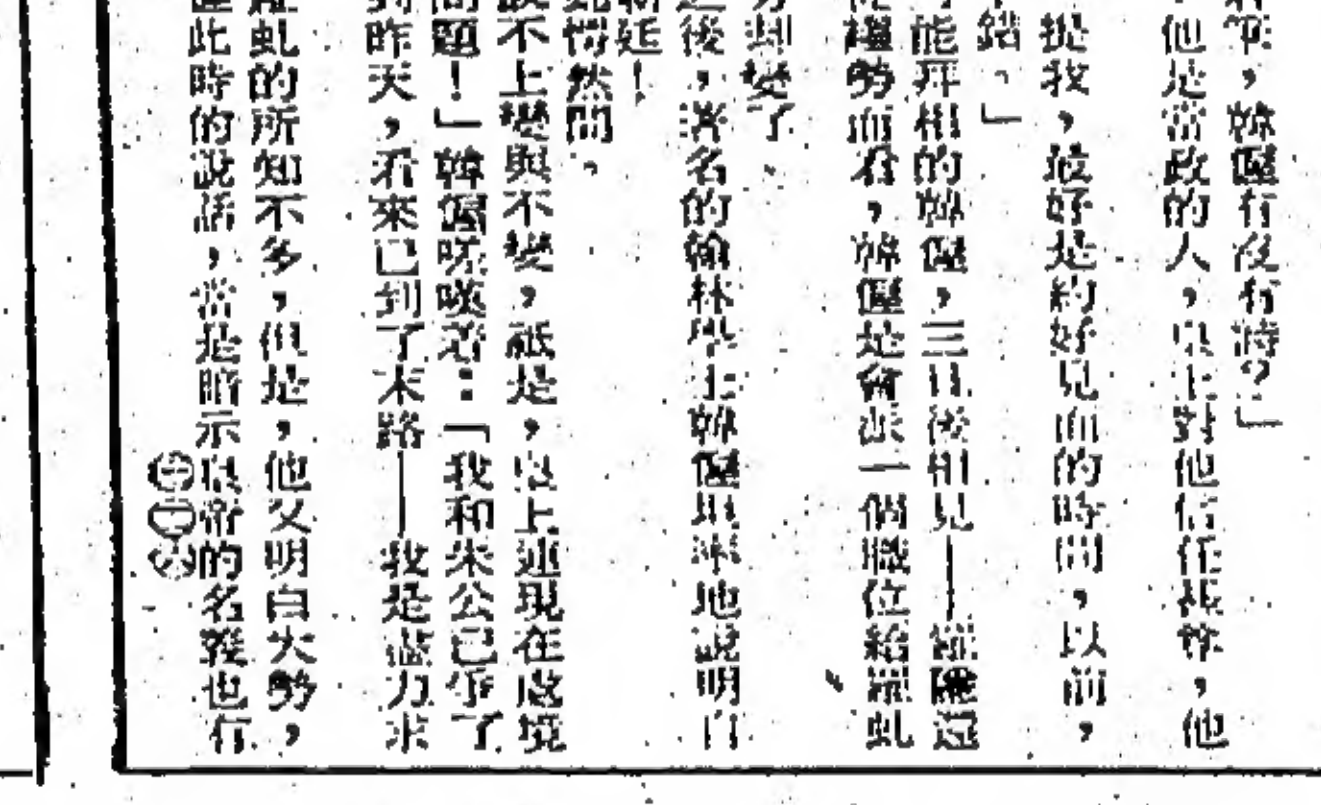 筆，韓偓有沒有時？」
他是當政的人，皇上對他信任極尊，他
提我，最好是約好見面的時間，以前，
錯。」
能拜相的韓偓，三日後相見——羅隱還
從趨勢而看，韓偓是會派一個職位給羅虬
却變了。
後，著名的翰林學士韓偓坦率地說明自
新廷！
愕然問。
說不上變與不變，祇是，皇上連現在處境
問題！」韓偓咲嘆着：「我和朱公已爭了
到昨天，看來已到了末路——我是盡力求
羅虬的所知不多，但是，他又明白大勢，
此時的說話，當是暗示皇帝的名義也有